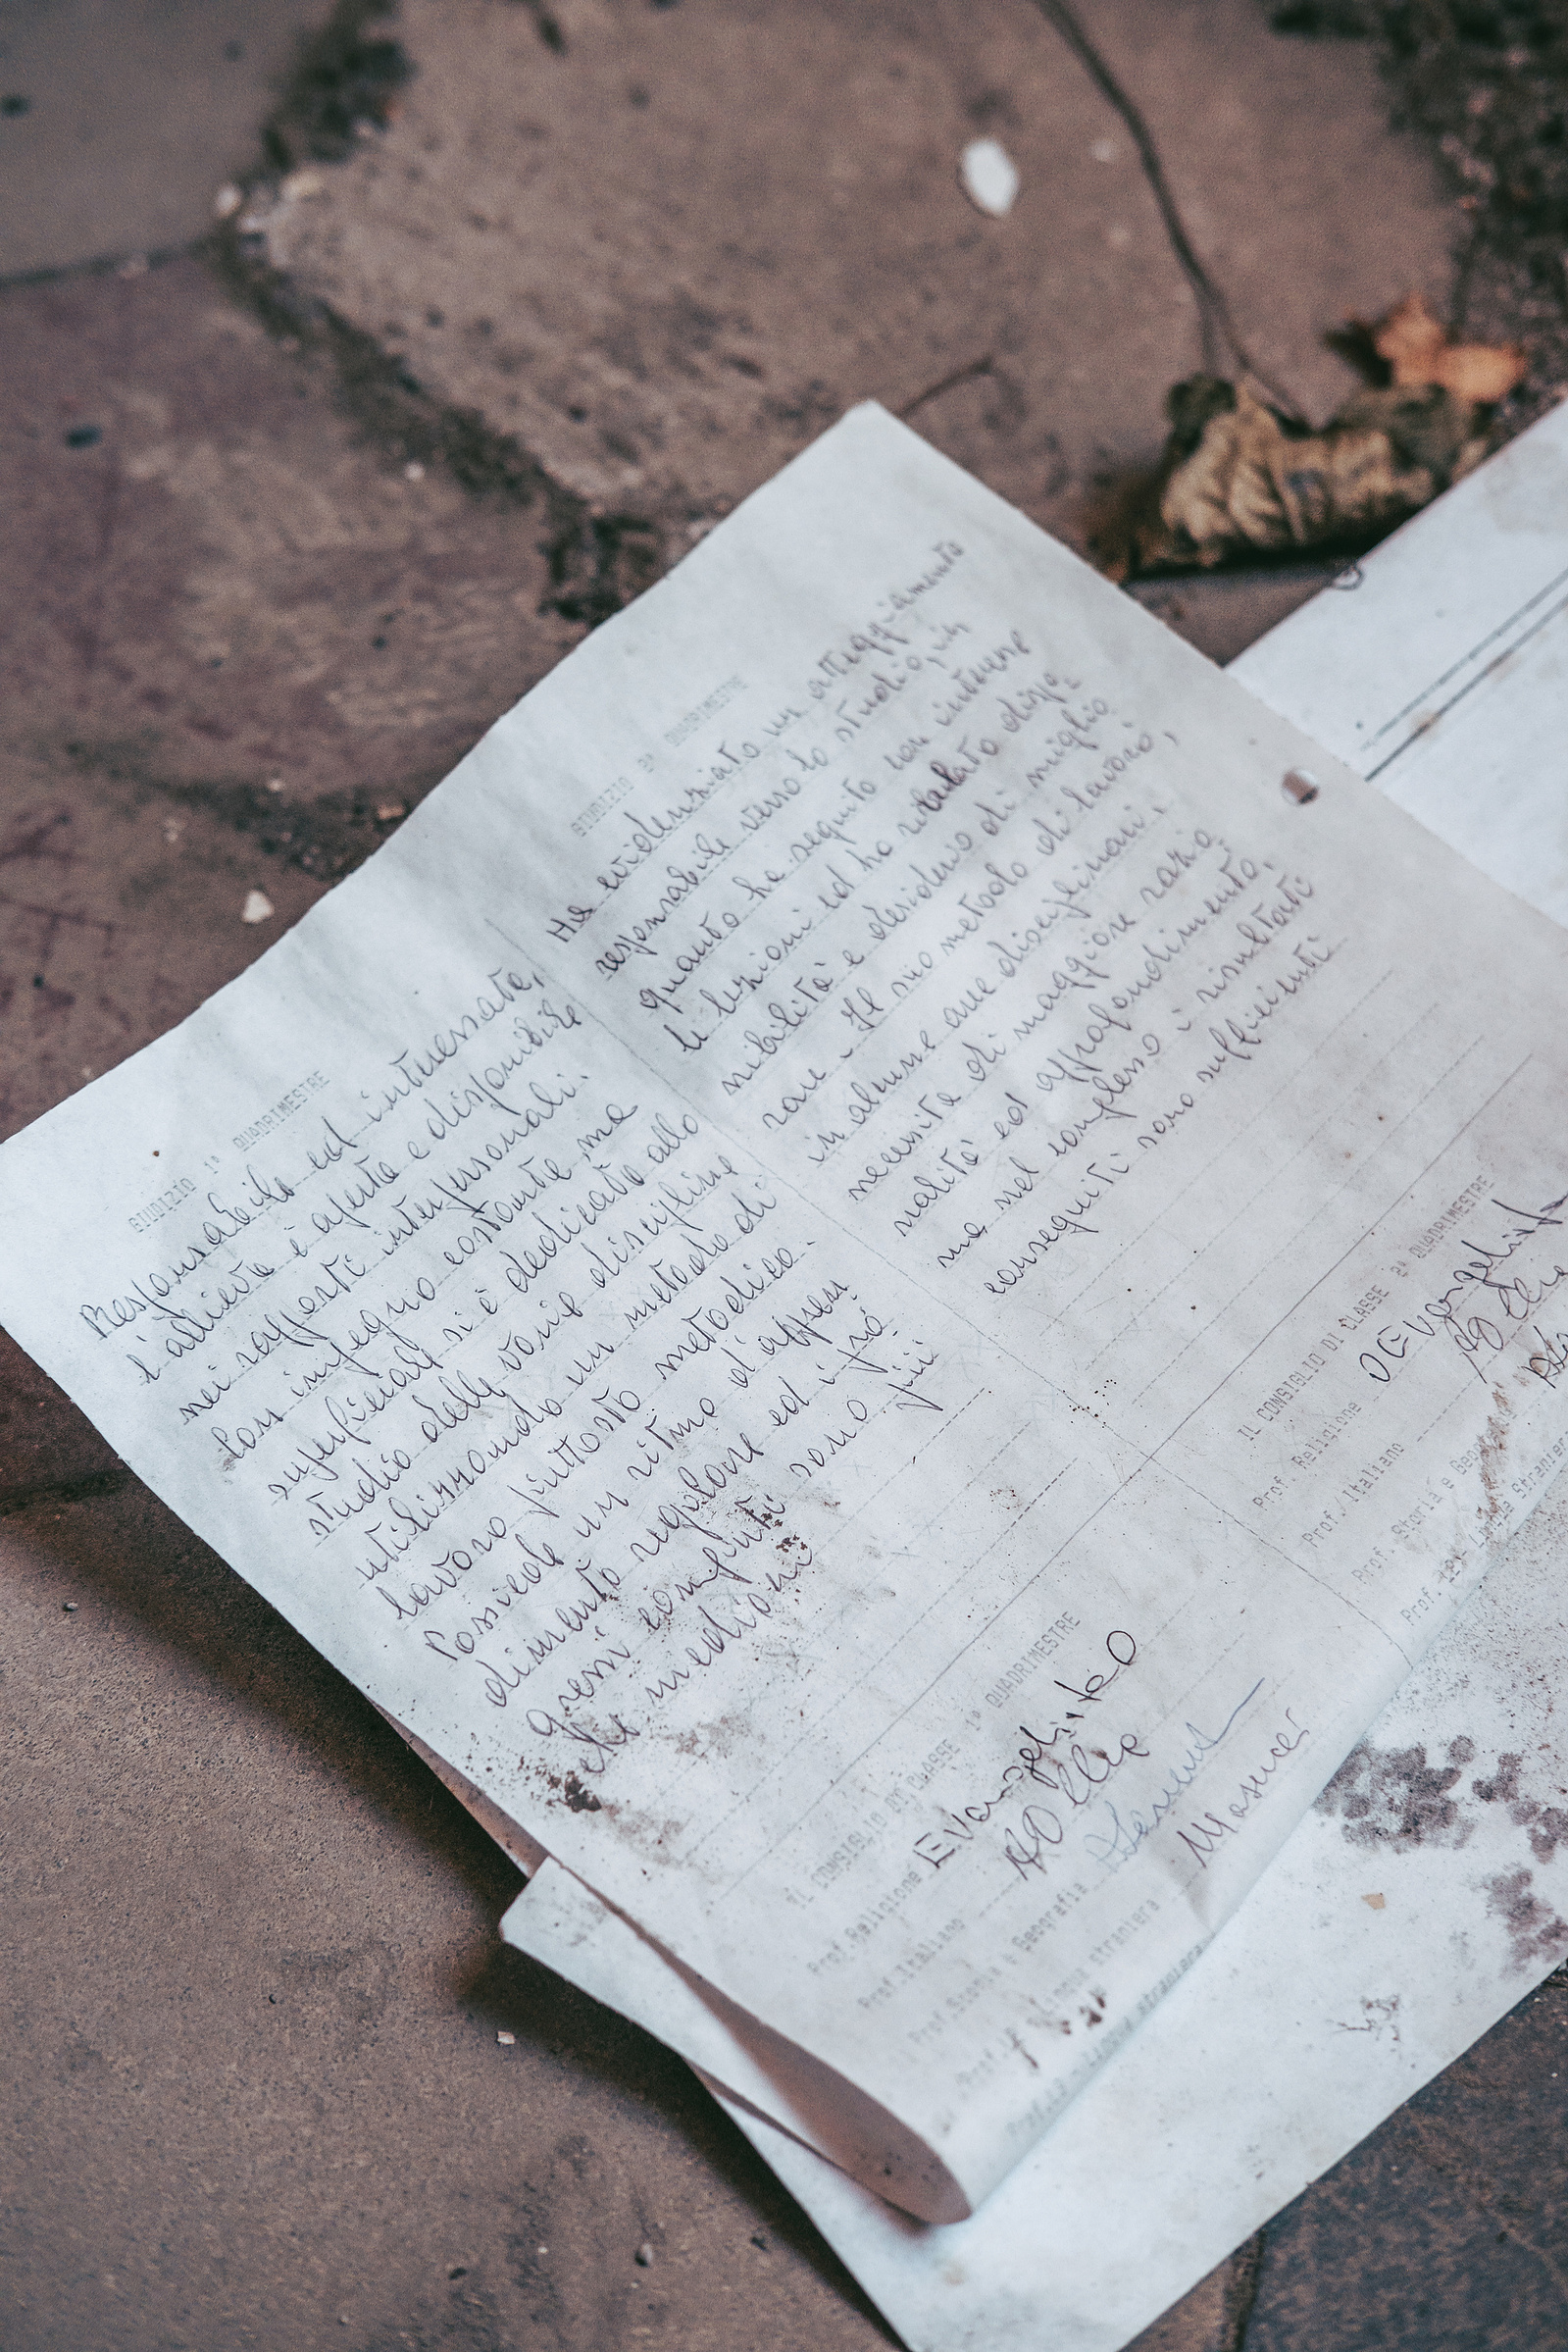 GIUDIZIO 1° QUADRIMESTRE
Responsabile ed interessata,
l'allieva è aperta e disponibile
nei rapporti interpersonali.
Con impegno costante, ma
superficiale si è dedicata allo
studio delle varie discipline
utilizzando un metodo di
lavoro piuttosto metodico.
Possiede un ritmo d'appren
dimento regolare ed i pro
gressi compiuti sono più
che mediocri
GIUDIZIO 2° QUADRIMESTRE
Ha evidenziato un atteggiamento
responsabile verso lo studio, in
quanto ha seguito con interesse
le lezioni ed ha rivelato dispo-
nibilità e desiderio di miglio
rare. Il suo metodo di lavoro,
in alcune aree disciplinari,
necessita di maggiore razio
nalità ed approfondimento,
ma nel complesso i risultati
conseguiti sono sufficienti
IL CONSIGLIO DI CLASSE 1° QUADRIMESTRE
Prof. Religione Evangelista O
Prof. Italiano
Prof. Storia e Geografia
Prof. Lingua straniera
Prof. Lingua straniera
IL CONSIGLIO DI CLASSE 2° QUADRIMESTRE
Prof. Religione O Evangelista
Prof. Italiano
Prof. Storia e Geografia
Prof. Lingua Straniera